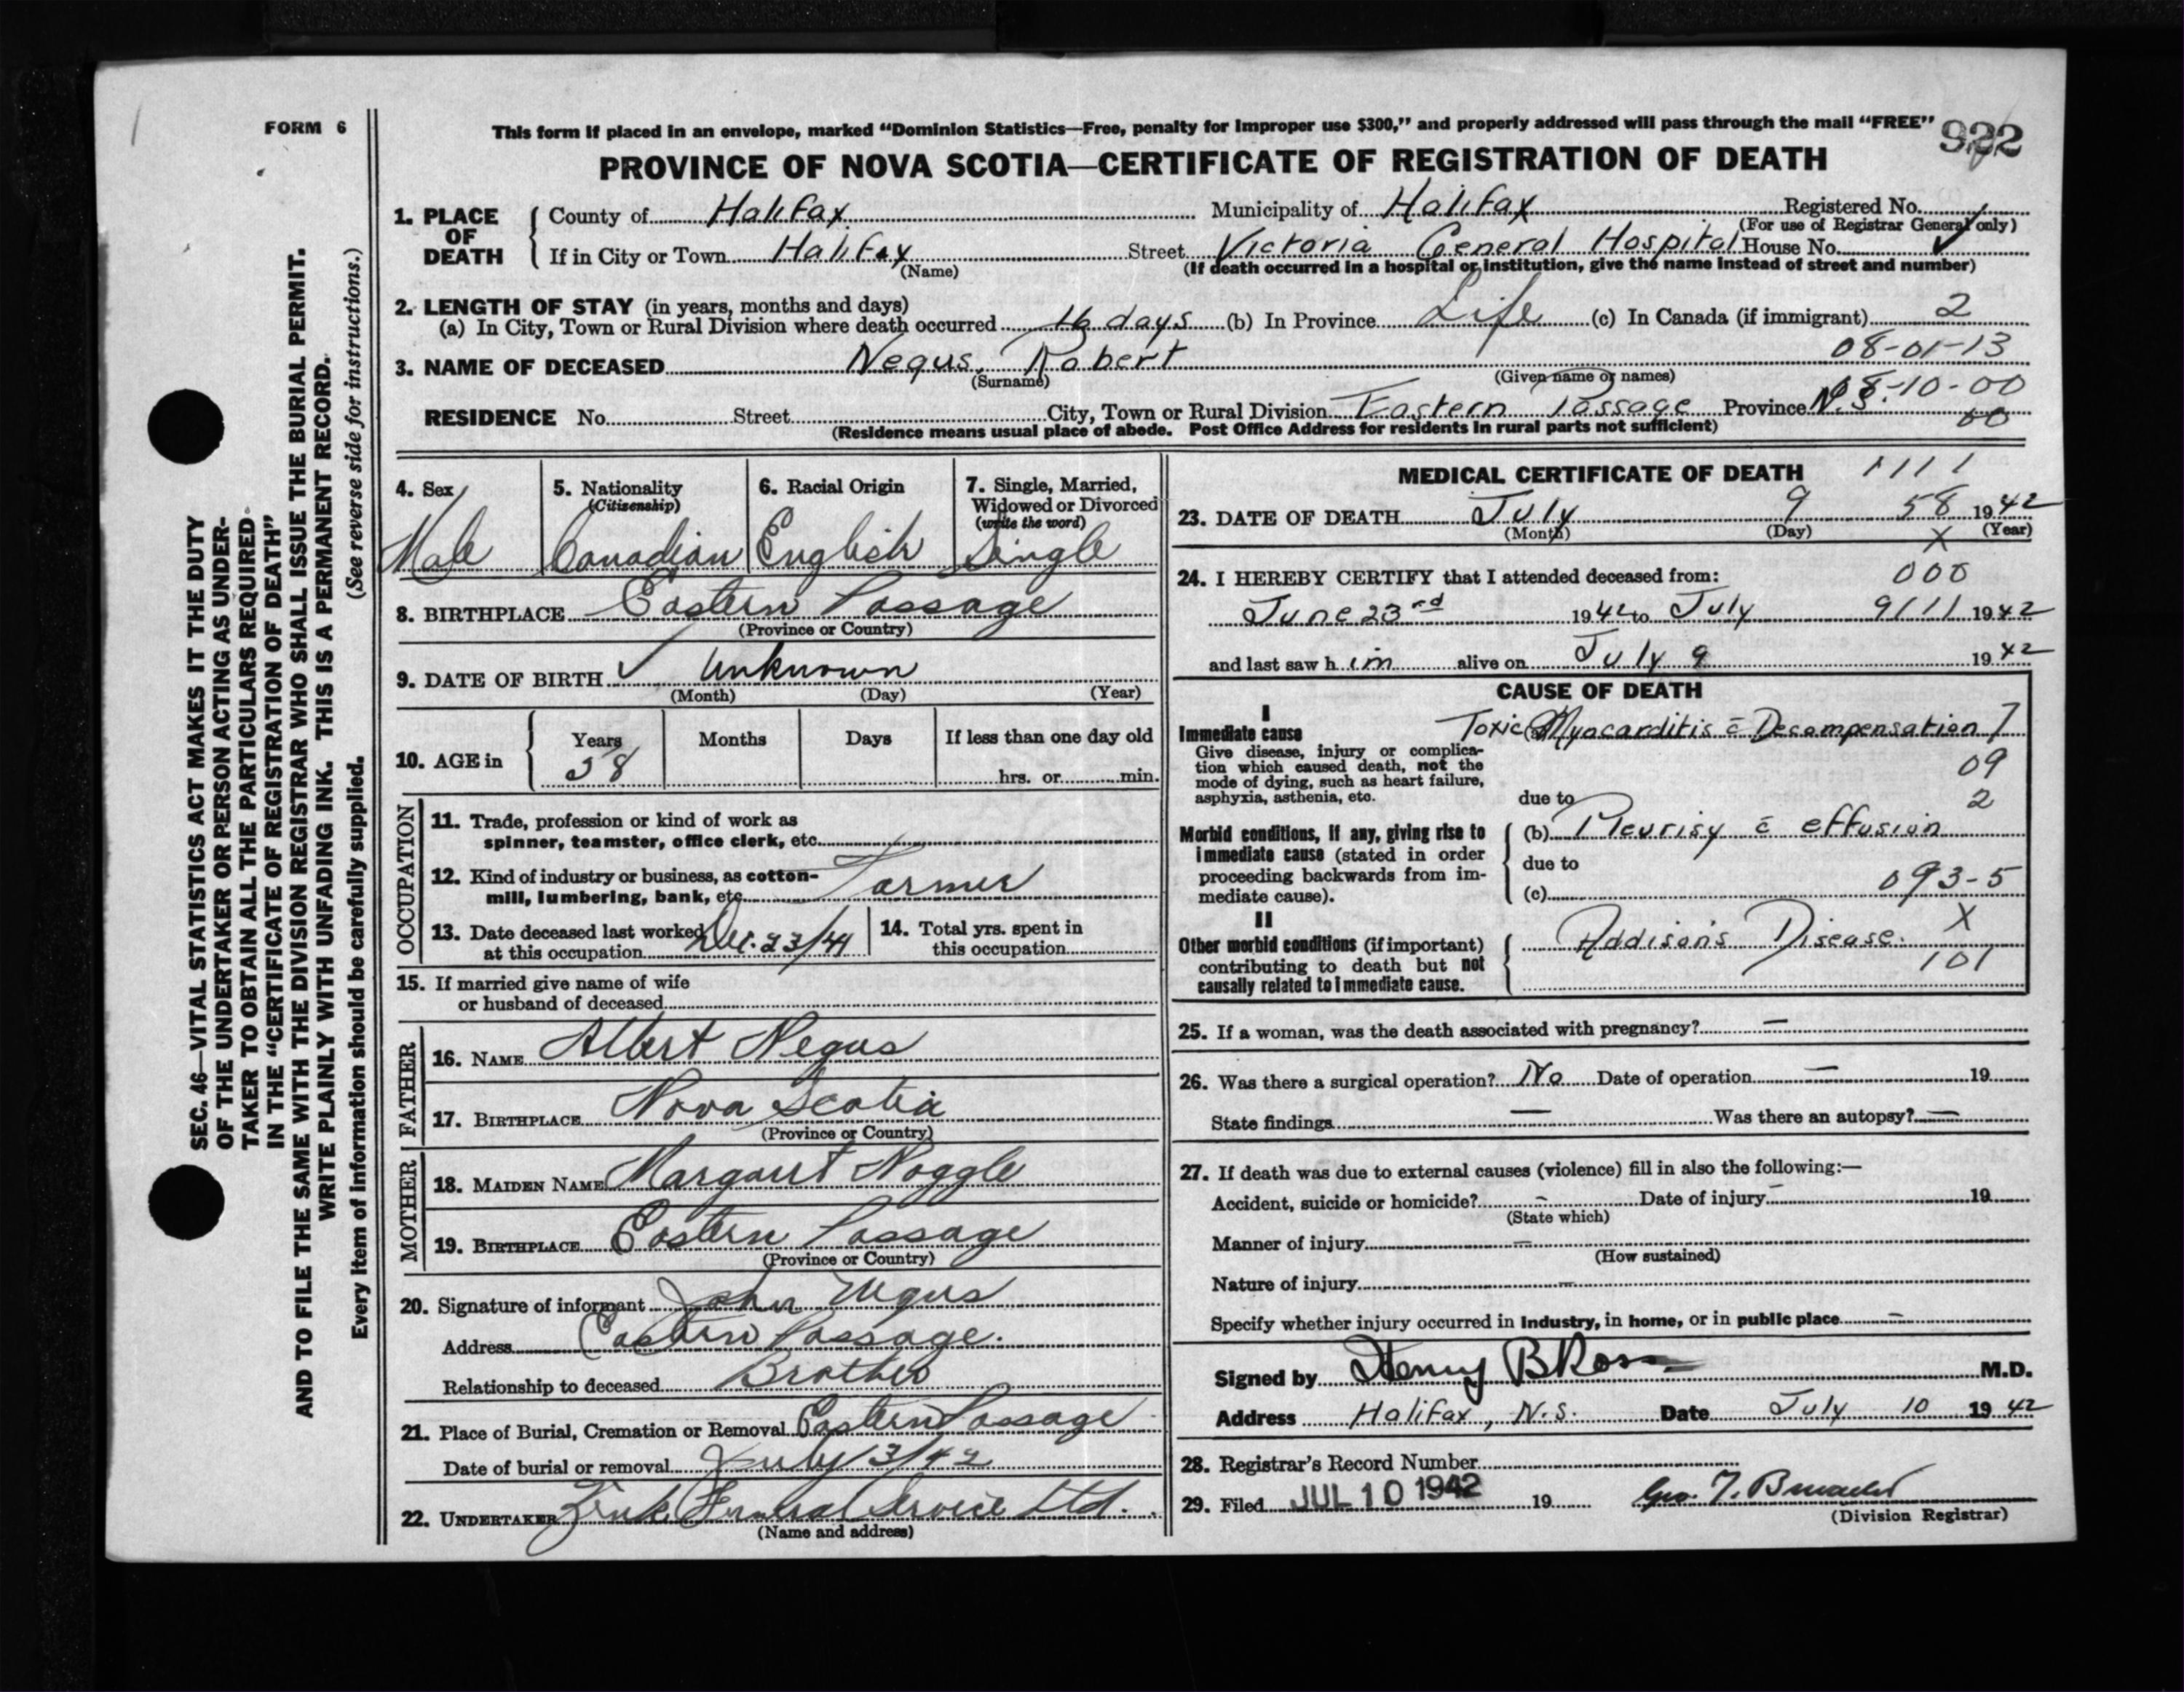 FORM 6
This form if placed in an envelope, marked “Dominion Statistics—Free, penalty for improper use $300,” and properly addressed will pass through the mail “FREE”
PROVINCE OF NOVA SCOTIA—CERTIFICATE OF REGISTRATION OF DEATH
1. PLACE OF DEATH
County of Halifax Municipality of Halifax Registered No.
(For use of Registrar General only)
If in City or Town Halifax Street Victoria General Hospital House No.
(Name) (If death occurred in a hospital or institution, give the name instead of street and number)
2. LENGTH OF STAY (in years, months and days)
(a) In City, Town or Rural Division where death occurred 16 days (b) In Province Life (c) In Canada (if immigrant) 2
08-01-13
3. NAME OF DECEASED Negus, Robert
(Surname) (Given name or names)
08-10-00
RESIDENCE No. Street City, Town or Rural Division Eastern Passage Province N.S.
00
(Residence means usual place of abode. Post Office Address for residents in rural parts not sufficient)
4. Sex
Male
5. Nationality
(Citizenship)
Canadian
6. Racial Origin
English
7. Single, Married,
Widowed or Divorced
(write the word)
Single
8. BIRTHPLACE Eastern Passage
(Province or Country)
9. DATE OF BIRTH Unknown
(Month) (Day) (Year)
10. AGE in
Years Months Days If less than one day old
58 hrs. or min.
OCCUPATION
11. Trade, profession or kind of work as
spinner, teamster, office clerk, etc.
12. Kind of industry or business, as cotton-
mill, lumbering, bank, etc. Farmer
13. Date deceased last worked
at this occupation Dec. 23/41
14. Total yrs. spent in
this occupation
15. If married give name of wife
or husband of deceased
FATHER
16. NAME Albert Negus
17. BIRTHPLACE Nova Scotia
(Province or Country)
MOTHER
18. MAIDEN NAME Margaret Noggle
19. BIRTHPLACE Eastern Passage
(Province or Country)
20. Signature of informant John Negus
Address Eastern Passage.
Relationship to deceased Brother
21. Place of Burial, Cremation or Removal Eastern Passage
Date of burial or removal July 13/42
22. UNDERTAKER Zink Funeral Service Ltd.
(Name and address)
MEDICAL CERTIFICATE OF DEATH 1111
23. DATE OF DEATH July 9 58 1942
(Month) (Day) (Year)
X
24. I HEREBY CERTIFY that I attended deceased from: 000
June 23rd 1942 to July 9 111 1942
and last saw h im alive on July 9 1942
CAUSE OF DEATH
I
Immediate cause Toxic Myocarditis c̄ Decompensation 7
Give disease, injury or complica-
tion which caused death, not the
mode of dying, such as heart failure,
asphyxia, asthenia, etc.
09
2
due to
Morbid conditions, if any, giving rise to
immediate cause (stated in order
proceeding backwards from im-
mediate cause).
(b) Pleurisy c̄ effusion
due to
(c) 093-5
II
Other morbid conditions (if important)
contributing to death but not
causally related to immediate cause.
X
Addison's Disease.
101
25. If a woman, was the death associated with pregnancy? —
26. Was there a surgical operation? No Date of operation — 19
State findings — Was there an autopsy? —
27. If death was due to external causes (violence) fill in also the following:—
Accident, suicide or homicide? - Date of injury - 19
(State which)
Manner of injury —
(How sustained)
Nature of injury —
Specify whether injury occurred in industry, in home, or in public place —
Signed by Henry B Ross M.D.
Address Halifax, N.S. Date July 10 1942
28. Registrar's Record Number
29. Filed JUL 10 1942 19
(Division Registrar)
SEC. 46—VITAL STATISTICS ACT MAKES IT THE DUTY
OF THE UNDERTAKER OR PERSON ACTING AS UNDER-
TAKER TO OBTAIN ALL THE PARTICULARS REQUIRED
IN THE “CERTIFICATE OF REGISTRATION OF DEATH”
AND TO FILE THE SAME WITH THE DIVISION REGISTRAR WHO SHALL ISSUE THE BURIAL PERMIT.
WRITE PLAINLY WITH UNFADING INK. THIS IS A PERMANENT RECORD.
Every item of information should be carefully supplied. (See reverse side for instructions.)